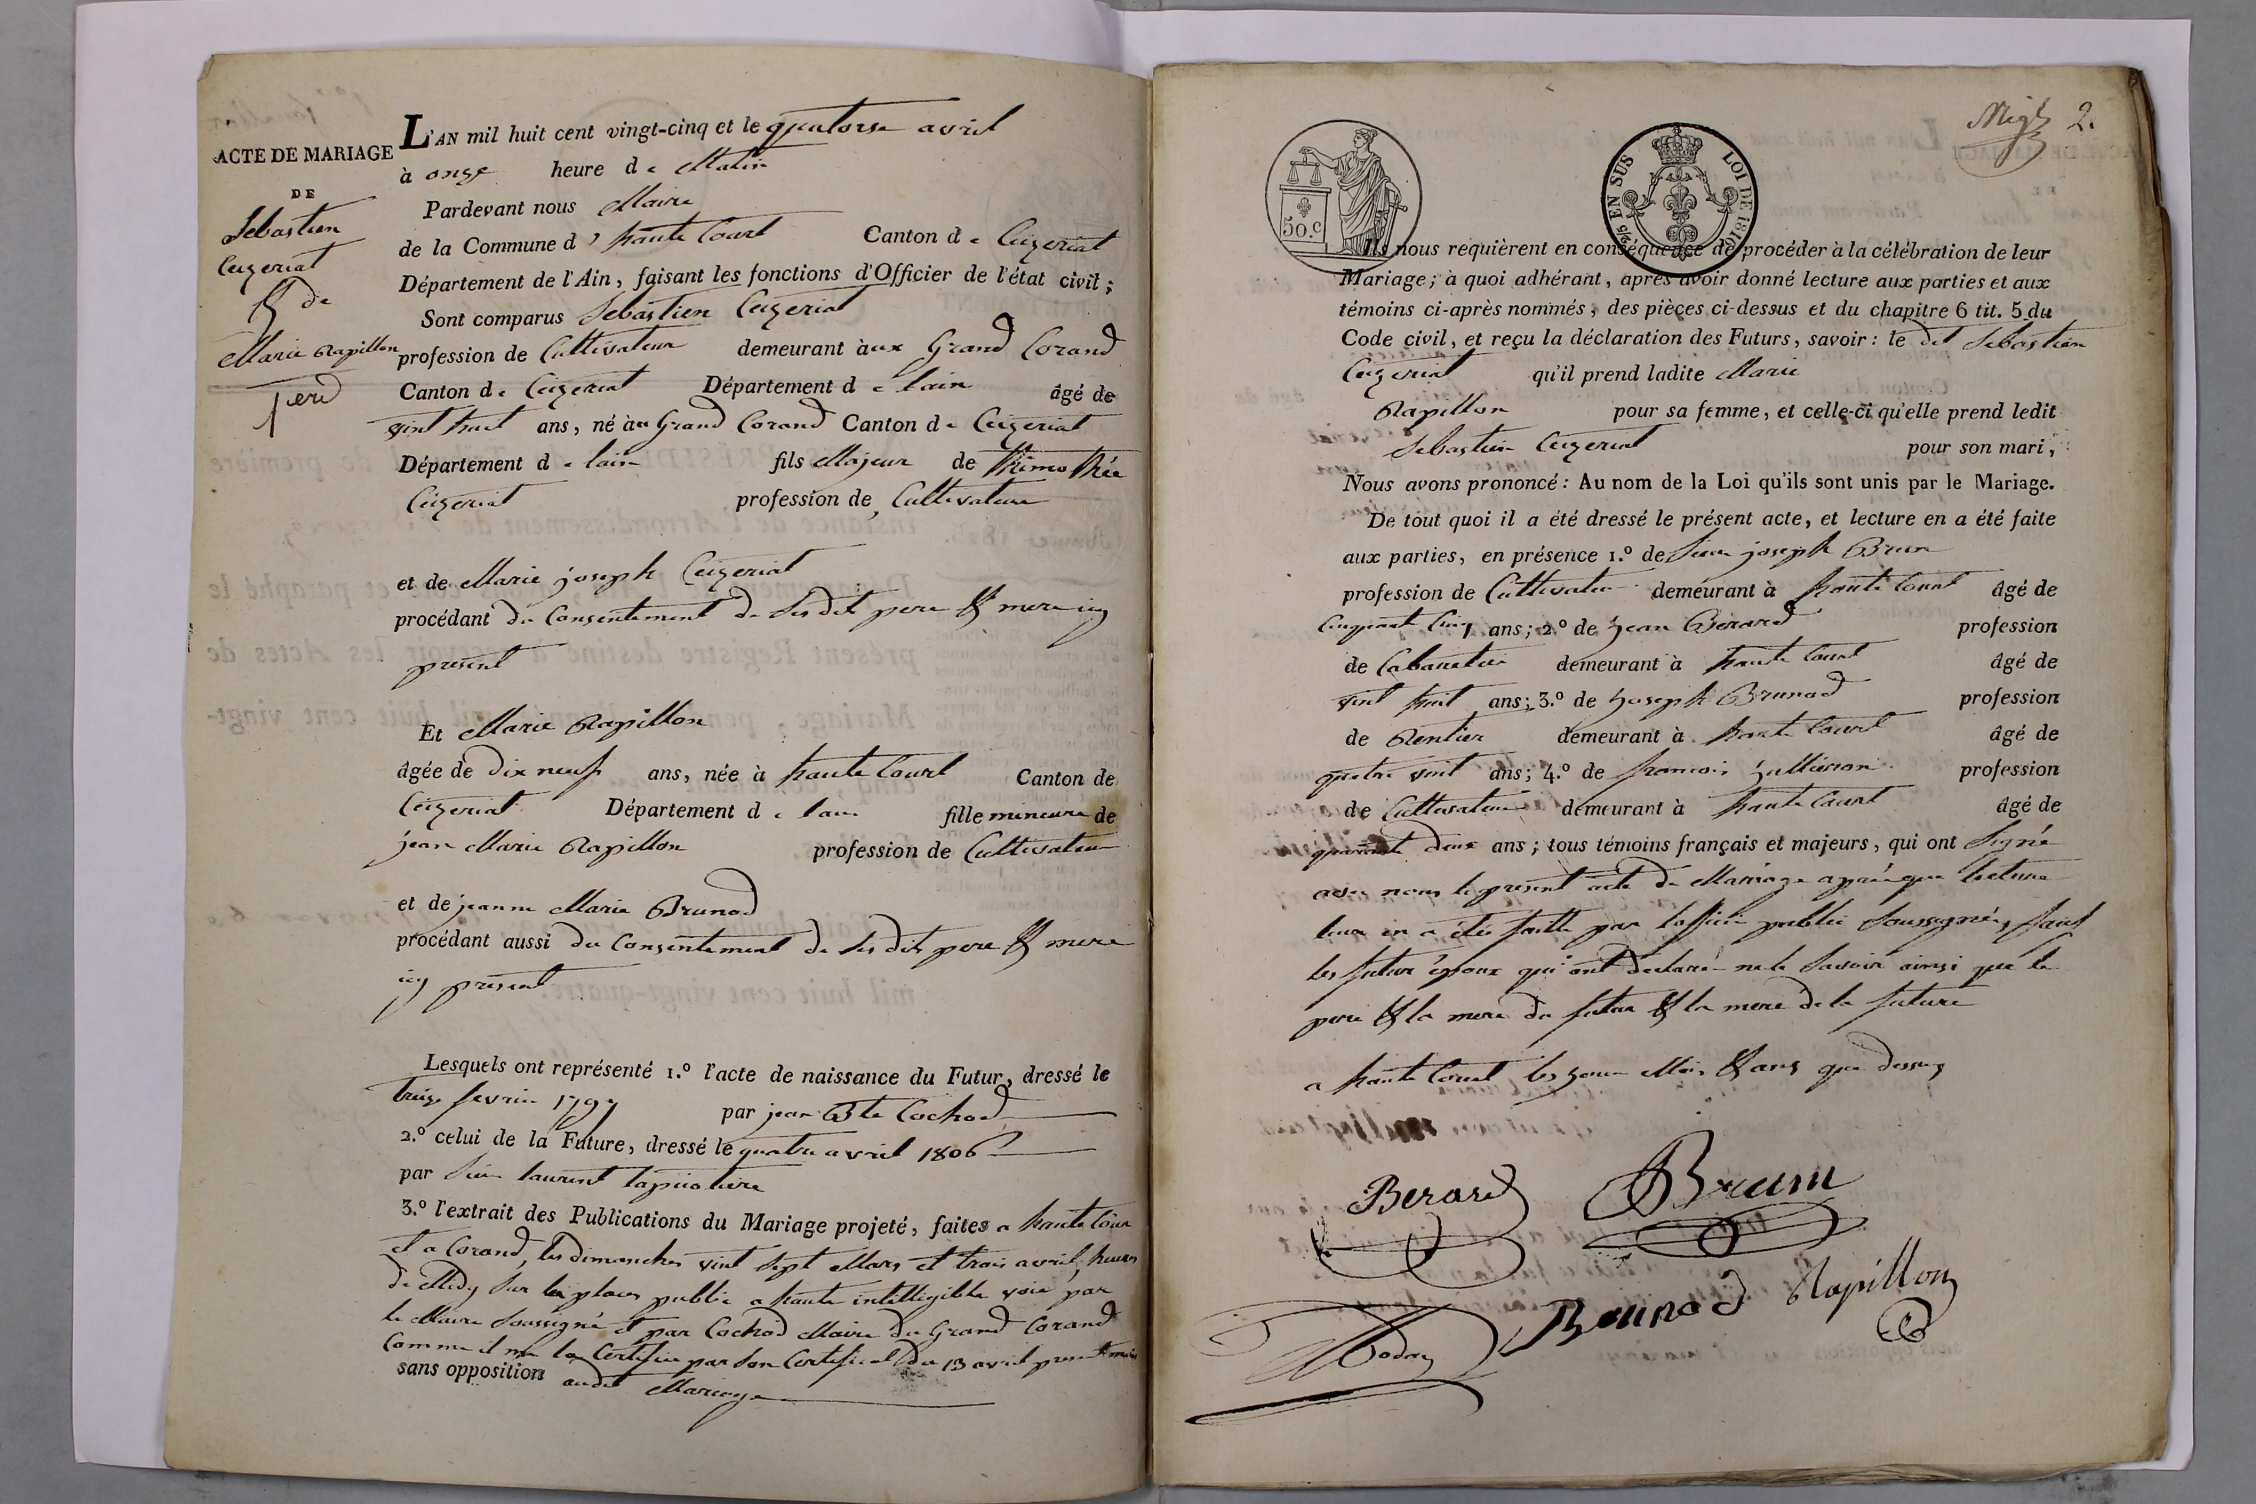 ACTE DE MARIAGE
DE
Sebastien
Ceizeriat
& de
Marie Rapillon
L'AN mil huit cent vingt-cinq et le quatorse avril
à onze heure de Matin
Pardevant nous Maire
de la Commune d'haute Court Canton de Ceizeriat
Département de l'Ain, faisant les fonctions d'Officier de l'état civil;
Sont comparus Sebastien Ceizeriat
profession de Cultivateur demeurant àux Grand Corand
Canton de Ceizeriat Département de lain âgé de
vint huit ans, né àu Grand Corand Canton de Ceizeriat
Département de lain fils Majeur de thimothée
Ceizeriat profession de Cultivateur
et de Marie joseph Ceizeriat
procédant du Consentement de ses dit pere & mere icy
present
Et Marie Rapillon
âgée de dix neuf ans, née à haute Court Canton de
Ceizeriat Département de lain fille mineure de
jean Marie Rapillon profession de Cultivateur
et de jeanne Marie Brunod
procédant aussi du Consentement de ses dits pere & mere
icy present
Lesquels ont représenté 1.º l'acte de naissance du Futur, dressé le
treize fevrier 1797 par jean Bte Cochod
2.º celui de la Future, dressé le quatre avril 1806
par Sieur laurent
3.º l'extrait des Publications du Mariage projeté, faites a haute Cour
et a Corand, les dimanches vint sept Mars et trois avril, heure
de Midy sur la place public a haute intelligible voie par
le Maire soussigné et par Cochod Maire du Grand Corand
Comme il me la Certifié par son Certificat du 13 avril present mois
sans opposition audit Mariage
2.
50.C
2/5 EN SUS LOI DE 1816
Ils nous requièrent en conséquence de procéder à la célébration de leur
Mariage; à quoi adhérant, après avoir donné lecture aux parties et aux
témoins ci-après nommés, des pièces ci-dessus et du chapitre 6 tit. 5 du
Code civil, et reçu la déclaration des Futurs, savoir: le dit Sebastien
Ceizeriat qu'il prend ladite Marie
Rapillon pour sa femme, et celle-ci qu'elle prend ledit
Sebastien Ceizeriat pour son mari,
Nous avons prononcé: Au nom de la Loi qu'ils sont unis par le Mariage.
De tout quoi il a été dressé le présent acte, et lecture en a été faite
aux parties, en présence 1.º de Sieur joseph Brun
profession de Cultivateur demeurant à haute Court âgé de
Cinquante Cinq ans; 2.º de Jean Berard profession
de Cabaretier demeurant à haute Court âgé de
vint huit ans; 3.º de Joseph Brunod profession
de Rentier demeurant à haute Court âgé de
quatre vint ans; 4.º de francois profession
de Cultivateur demeurant à haute Court âgé de
quarante deux ans; tous témoins français et majeurs, qui ont Signé
avec nous le present acte de Mariage aprés que lecture
leur en a étée faitte par loffcier public soussigné, sauf
les futur époux qui ont declaré ne le savoir ainsi que le
pere & la mere du futur & la mere de la future
a haute Court les jour Mois & ans que dessus
Berard Brun
Brunod Rapillon